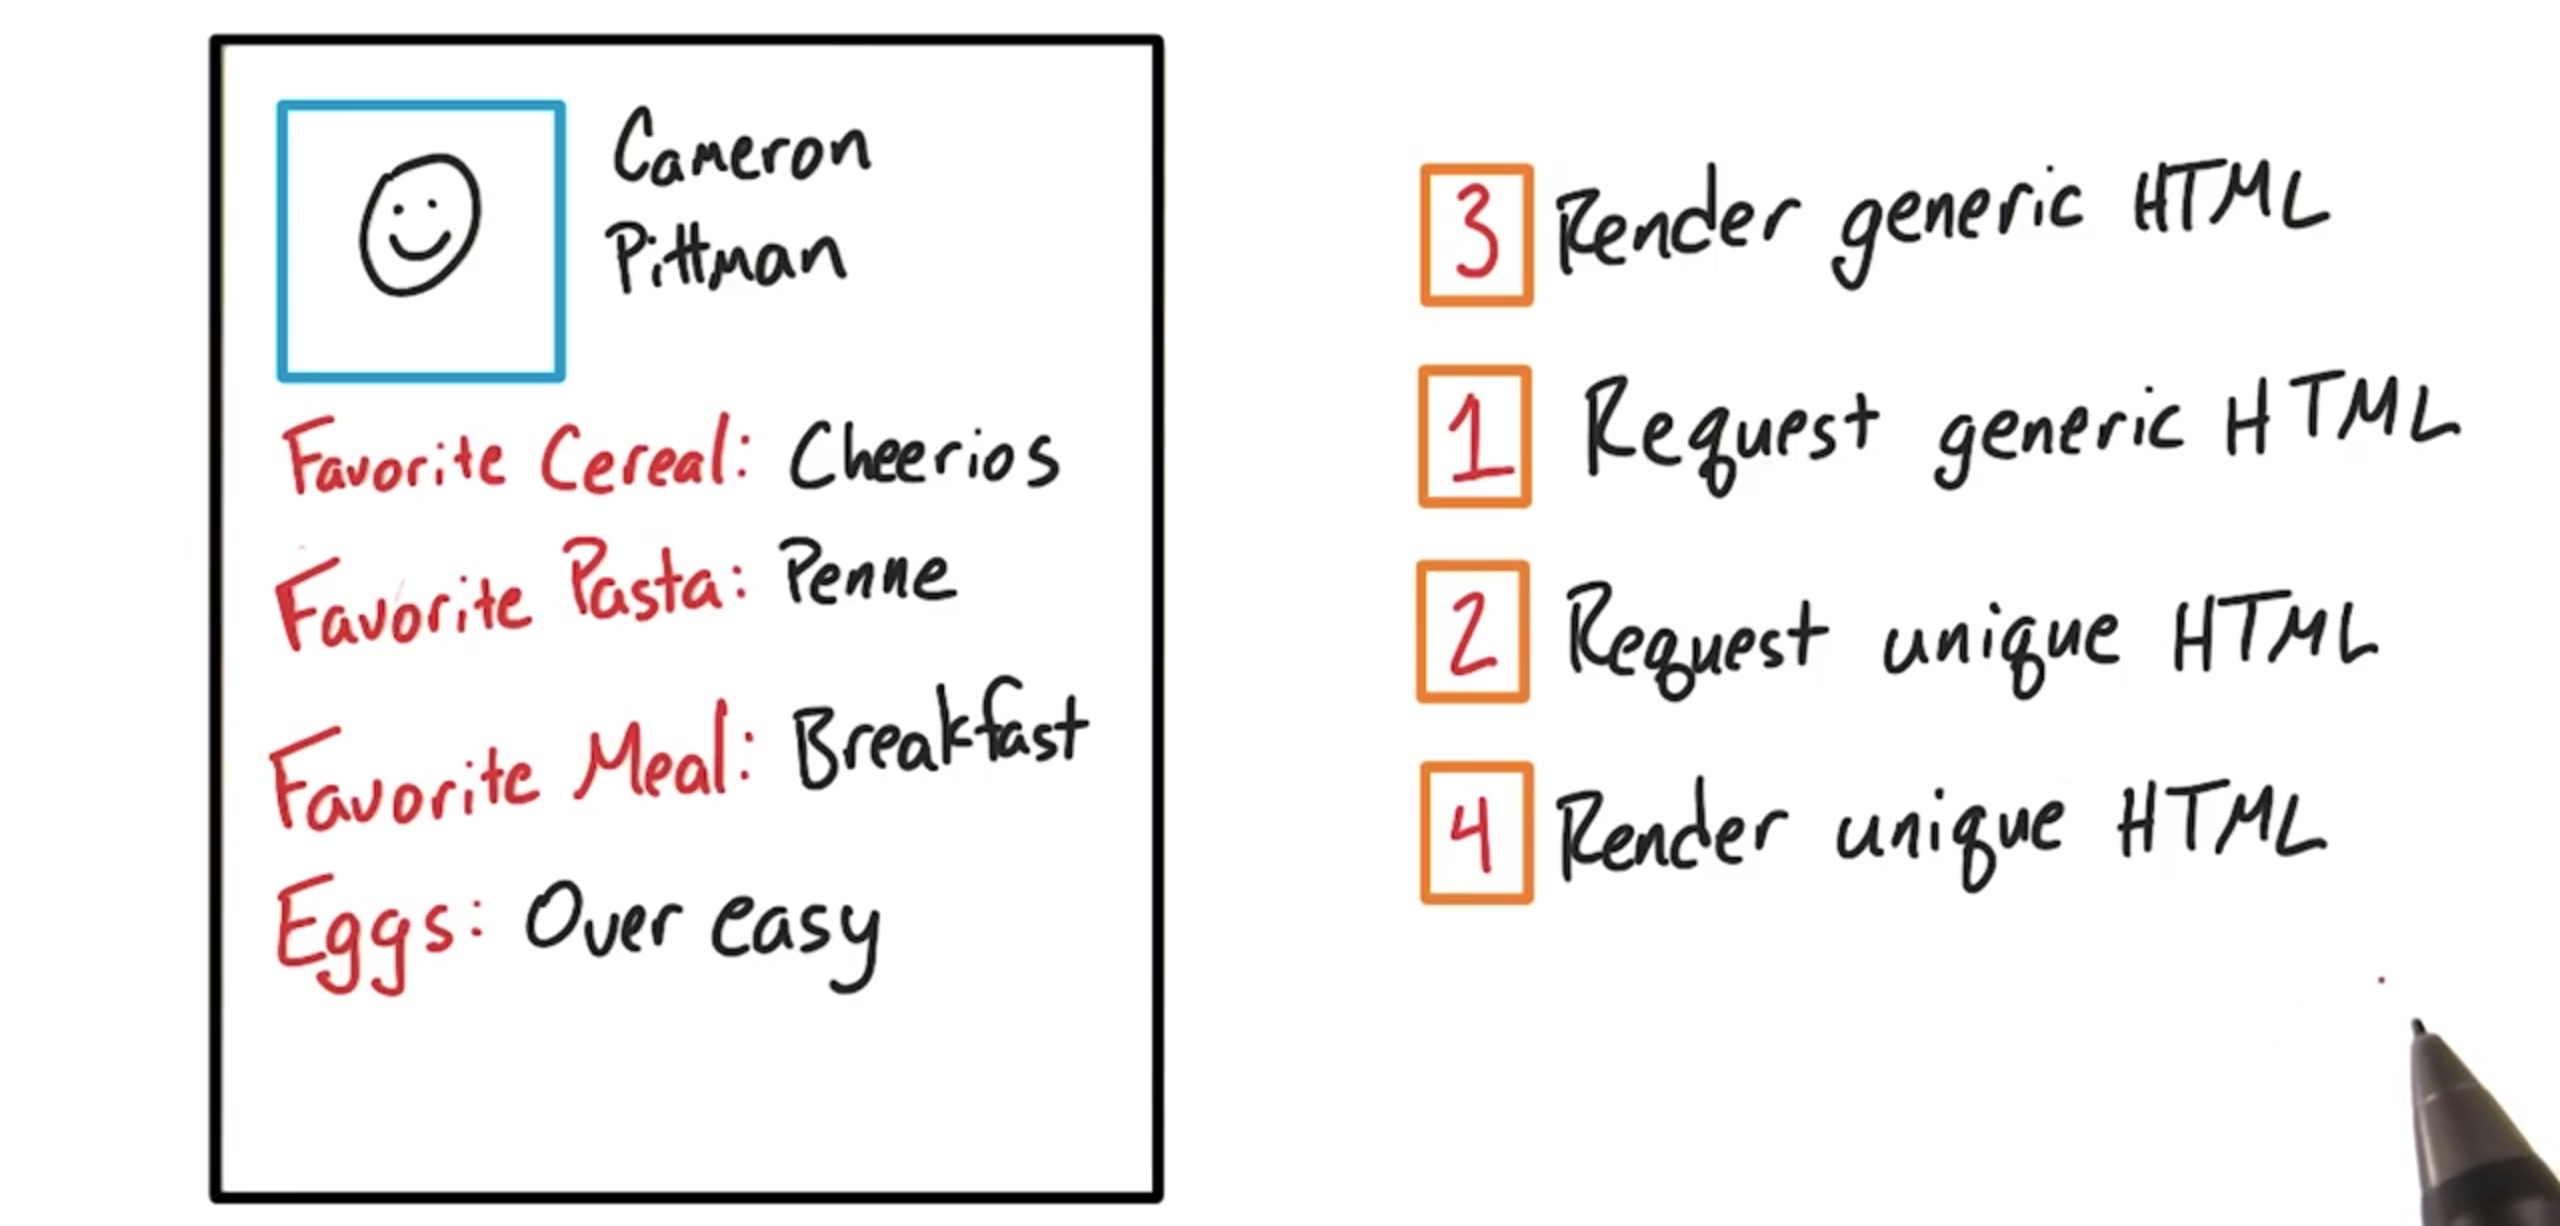 Cameron
Pittman
Favorite Cereal: Cheerios
Favorite Pasta: Penne
Favorite Meal: Breakfast
Eggs: Over easy
3 Render generic HTML
1 Request generic HTML
2 Request unique HTML
4 Render unique HTML